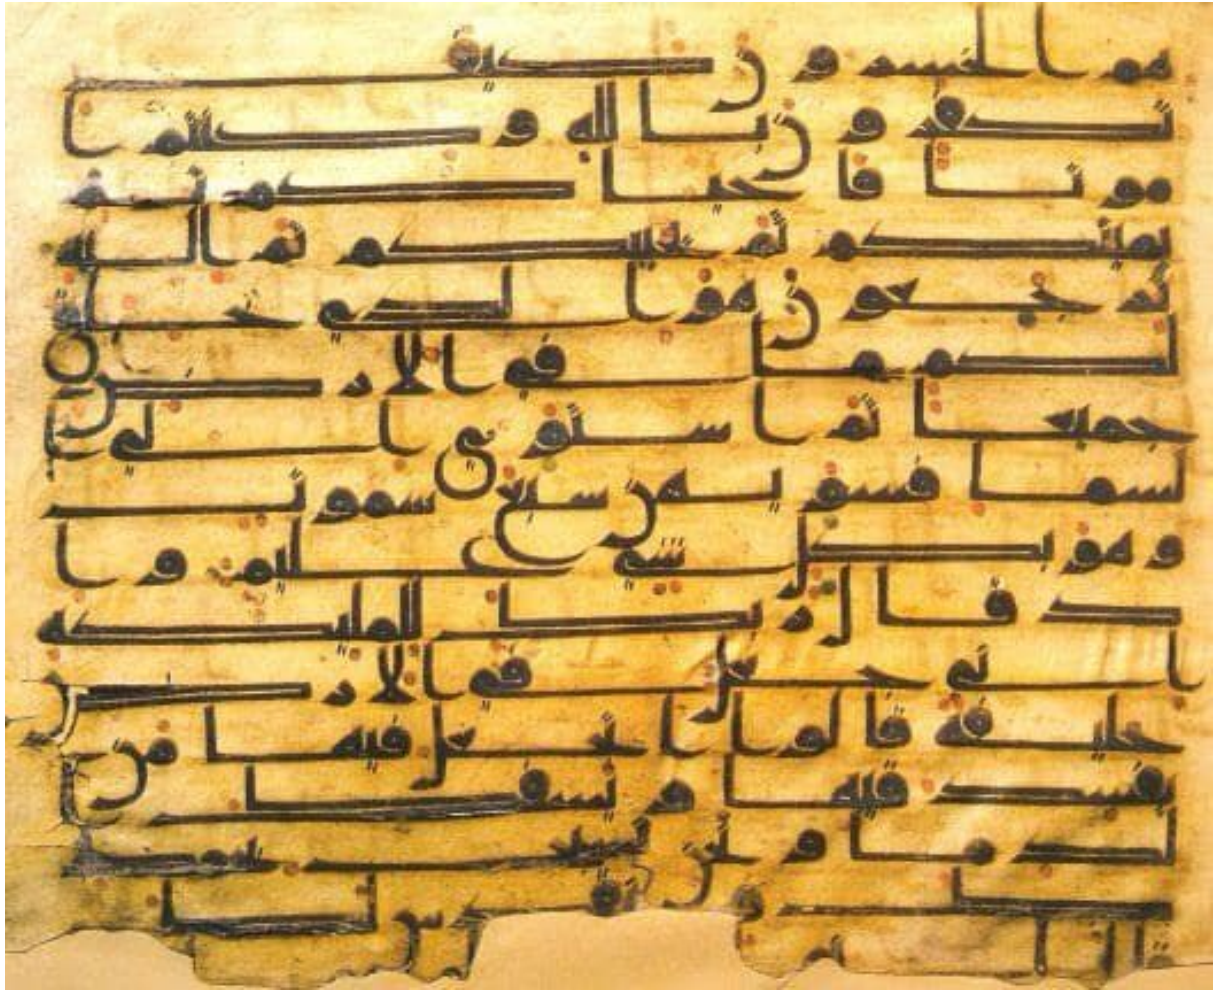 هم الخسرون كيف
تكفرون بالله وكنتم ا
موتا فاحياكم ثم
يميتكم ثم يحييكم ثم اليه
ترجعون هو الذي خلق
لكم ما في الارض
جميعا ثم استوى الى ا
لسما فسويهن سبع سموت
وهو بكل شي عليم وا
ذ قال ربك للمليكة
اني جعل في الارض
خليفة قالوا اتجعل فيها من
يفسد فيها ويسفك ا
لدما ونحن نسبح بحمد
ك ونقدس لك